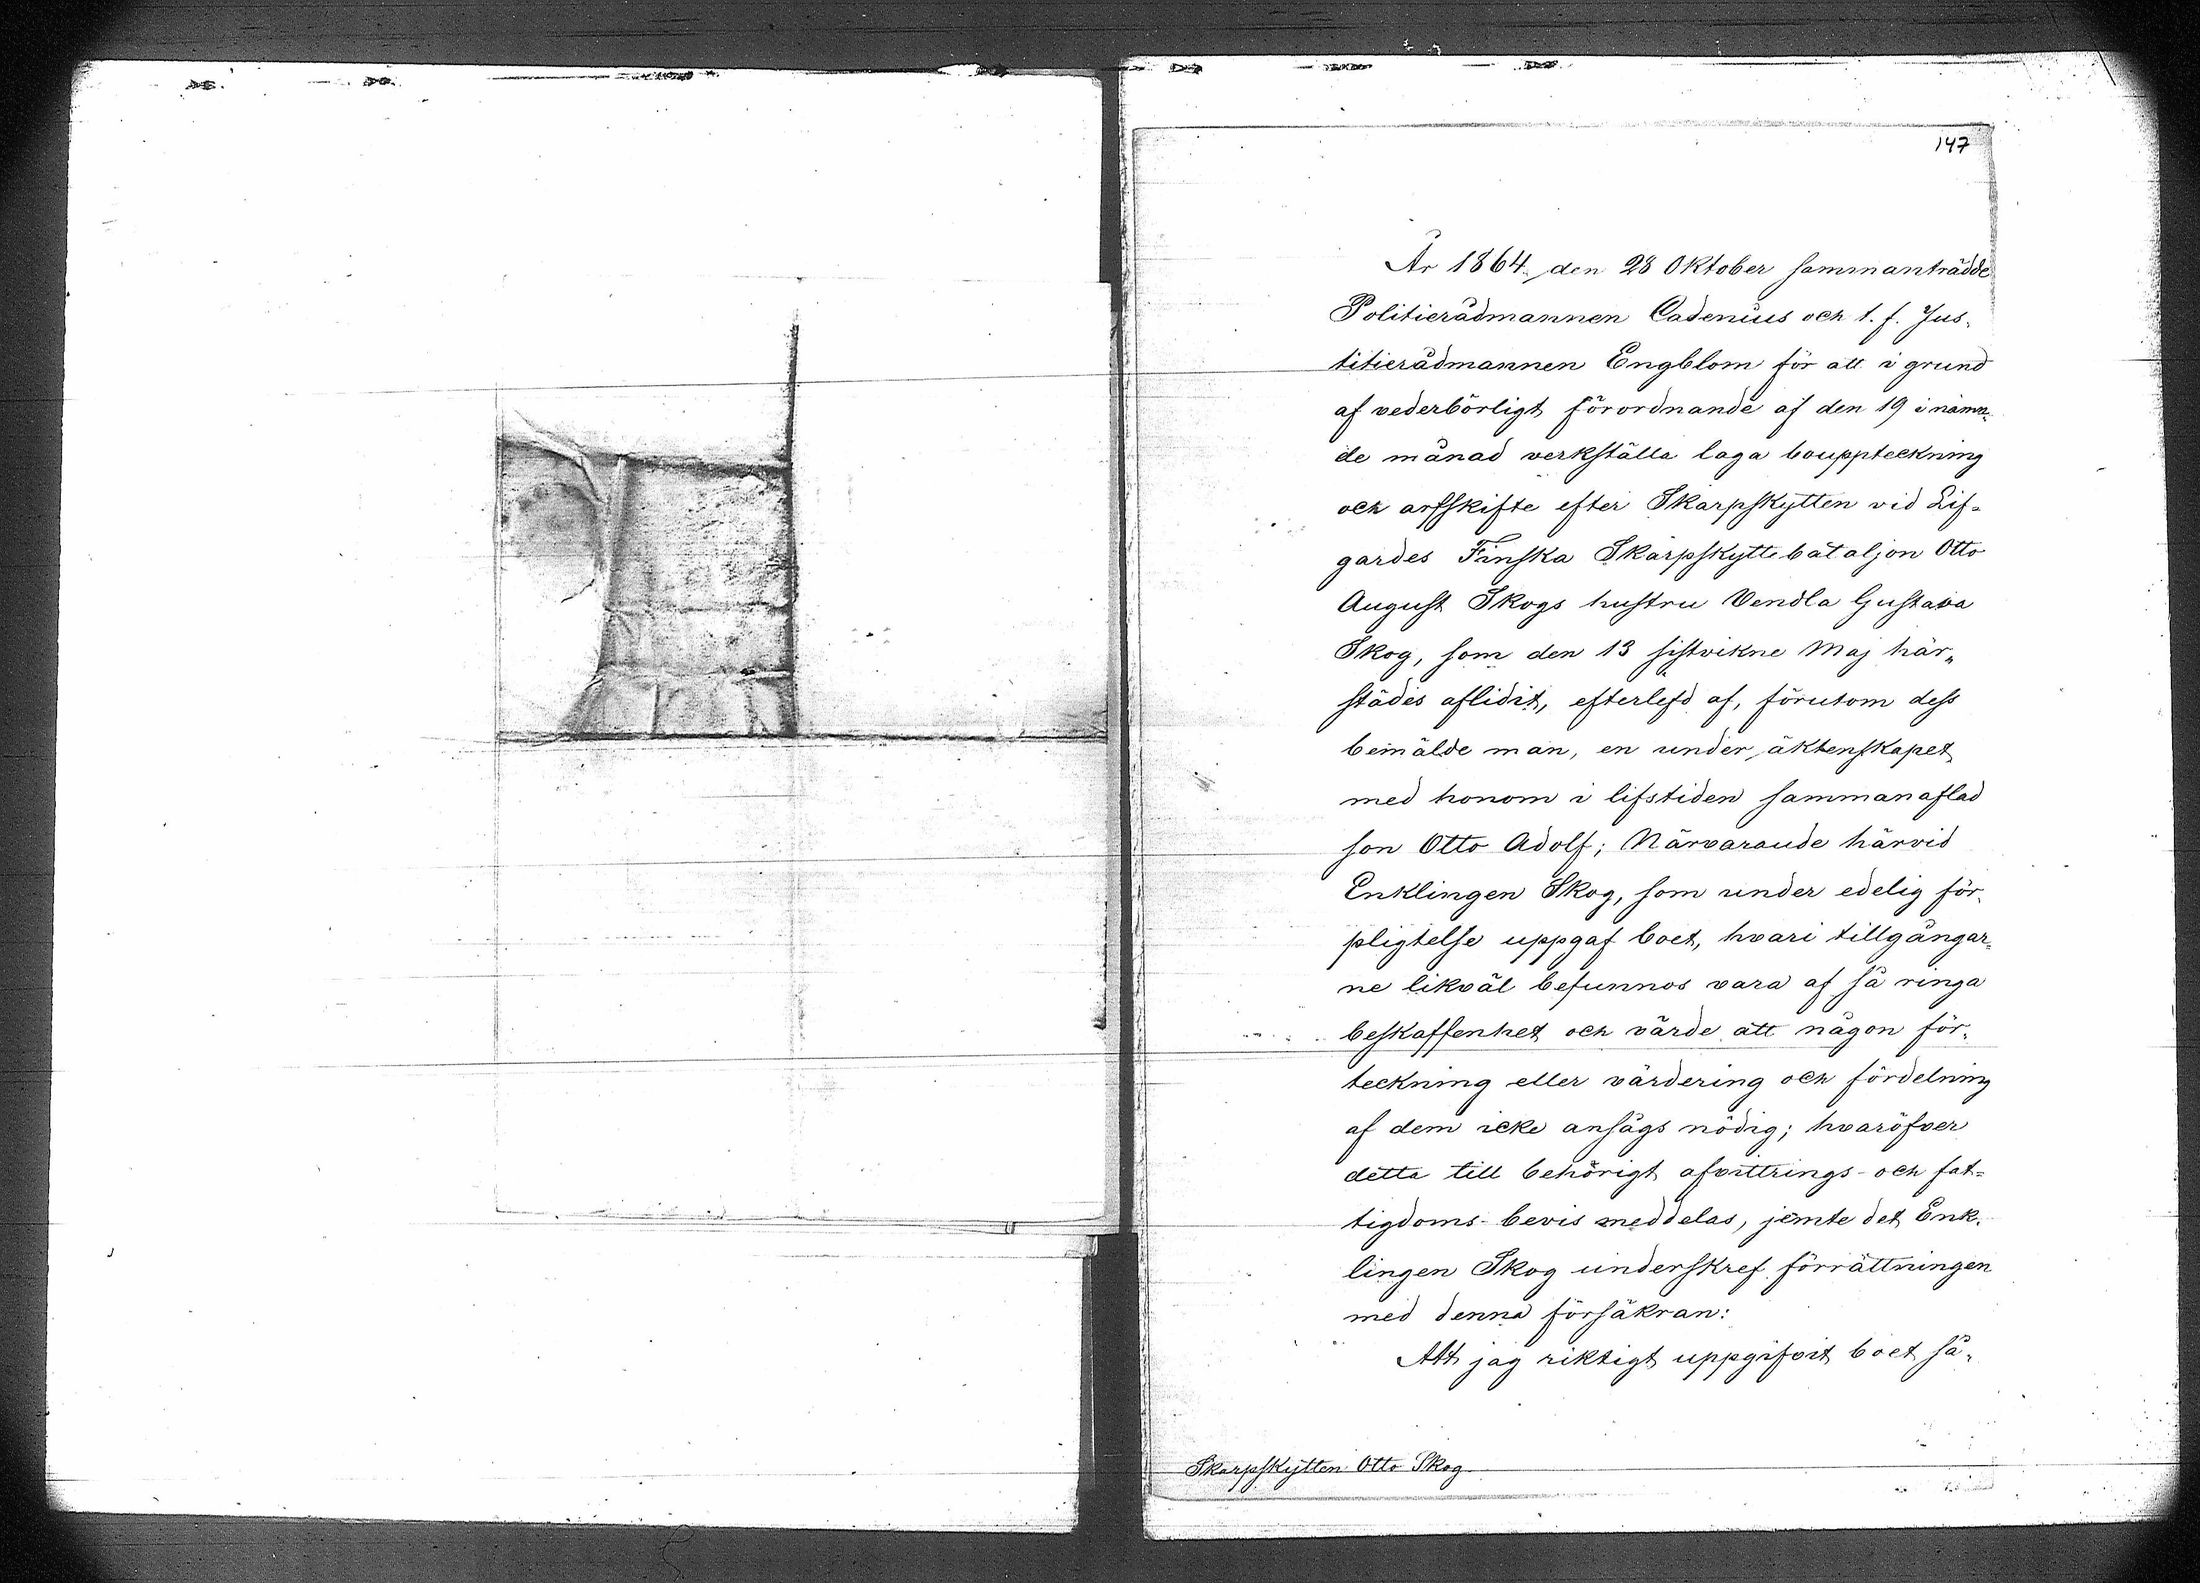 147
År 1864 den 28 Oktober sammanträdde
Politierådmannen Cadenius och t. f. Jus-
titierådmannen Engblom för att i grund
af vederbörligt förordnande af den 19 i nämn-
de månad verkställa laga bouppteckning
och arfskifte efter Skarpskytten vid Lif-
gardes Finska Skarpskyttebataljon Otto
August Skogs hustru Vendla Gustava
Skog, som den 13 sistvikne Maj här-
städes aflidit, efterlefd af, förutom dess
bemälde man, en under äktenskapet
med honom i lifstiden sammanaflad
son Otto Adolf; Närvarande härvid
Enklingen Skog, som under edelig för-
pligtelse uppgaf boet, hvari tillgångar-
ne likväl befunnos vara af så ringa
beskaffenhet och värde att någon för-
teckning eller värdering och fördelning
af dem icke ansågs nödig; hvaröfver
detta till behörigt afvittrings- och fat-
tigdoms-bevis meddelas, jemte det Enk-
lingen Skog underskref förrättningen
med denna försäkran:
Att jag riktigt uppgifvit boet så-
Skarpskytten Otto Skog